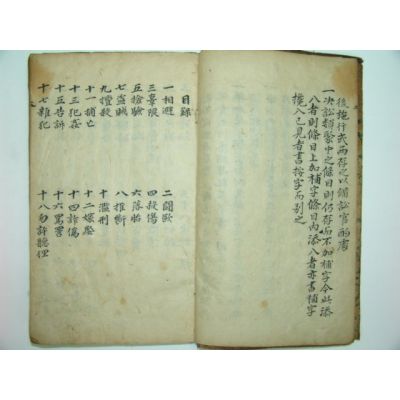 後施行或兩存之以備訟官酌處
一決訟類聚中之條目則仍存而不加補字今此添
入者則條目上加補字條目內添入者亦書補字
攙入己見者書按字而別之
目錄
一相避 二鬪毆
三喪限 四救傷
五檢驗 六落胎
七盜賊 八推斷
九擅殺 十濫刑
十一捕亡 十二嫁娶
十三犯姦 十四詐僞
十五告訴 十六罵詈
十七雜犯 十八勿許聽理